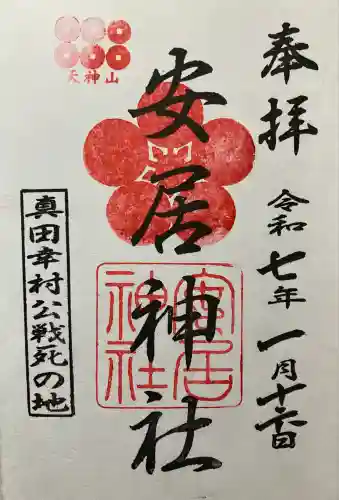 奉拝
令和七年一月十六日
天神山
安居神社
安居神社
真田幸村公戦死の地